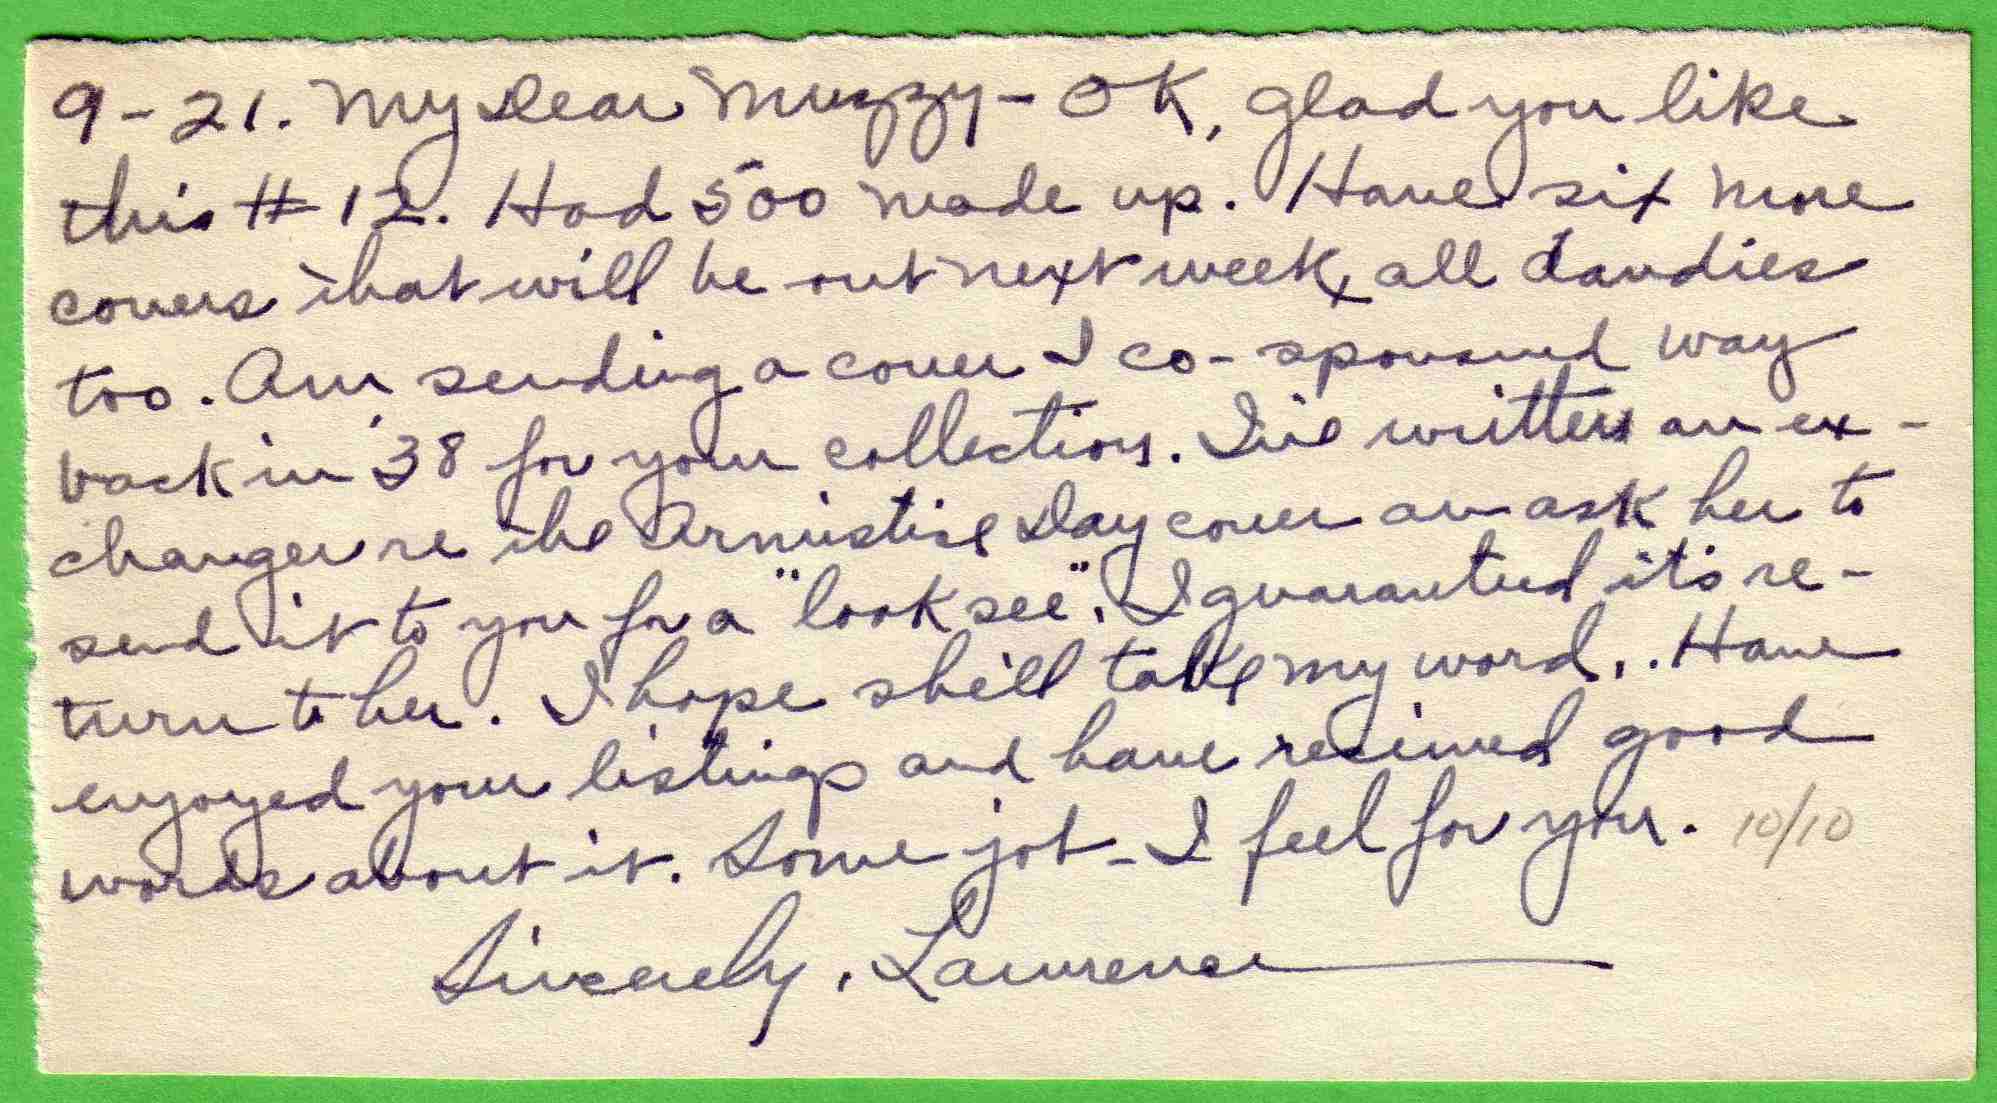 9-21. My Dear Muzzy - OK, glad you like
this # 12. Had 500 made up. Have six more
covers that will be out next week, all dandies
too. Am sending a cover I co-sponsored way
back in '38 for your collection. I've written an ex-
changer re the Armistise Day cover an ask her to
send it to you for a "look see". I guaranteed it's re-
turn to her. I hope she'll take my word.. Have
enjoyed your listings and have recived good
words about it. Some job - I feel for you. 10/10
Sincerely, Lawrence